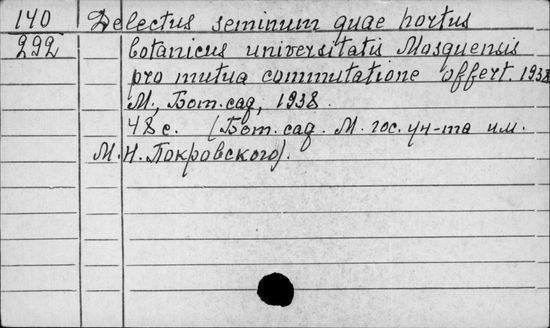 140 Delectus seminum quae hortus
292 botanicus universitatis Mosquensis
pro mutua commutatione offert. 1938
М., Бот. сад, 1938.
48 с. (Бот. сад. М. гос. ун-та им.
М. Н. Покровского).